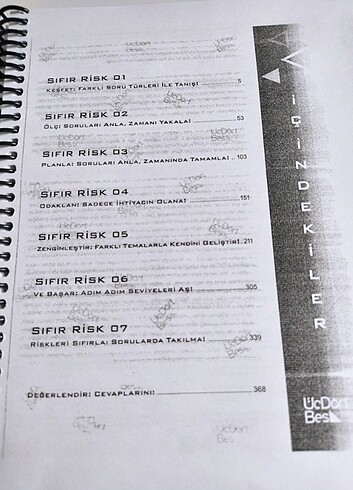 SIFIR RİSK 01
KEŞFET: FARKLI SORU TÜRLERİ İLE TANIŞ! 5
SIFIR RİSK 02
ÖLÇ: SORULARI ANLA, ZAMANI YAKALA! 53
SIFIR RİSK 03
PLANLA: SORULARI ANLA, ZAMANINDA TAMAMLA! .. 103
SIFIR RİSK 04
ODAKLAN: SADECE İHTİYACIN OLANA! 151
SIFIR RİSK 05
ZENGİNLEŞTİR: FARKLI TEMALARLA KENDİNİ GELİŞTİR!..211
SIFIR RİSK 06
VE BAŞAR: ADIM ADIM SEVİYELERİ AŞ! 305
SIFIR RİSK 07
RİSKLERİ SIFIRLA: SORULARDA TAKILMA! 339
DEĞERLENDİR: CEVAPLARINI! 368
İÇİNDEKİLER
ÜçDört
Beş